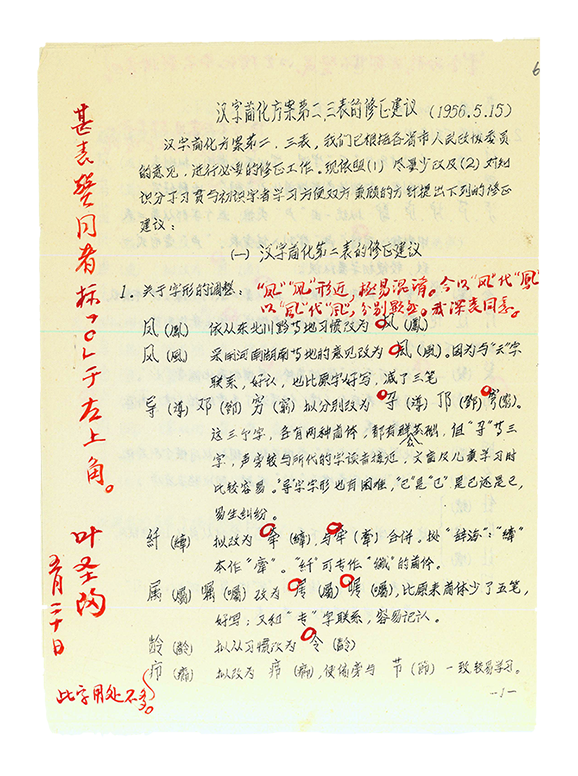 6
汉字简化方案第二、三表的修正建议 (1956.5.15)
汉字简化方案第二、三表,我们已根据各省市人民政协委员
的意见,进行必要的修正工作。现依照(1) 尽量少改及(2) 对知
识分子习惯与初识字者学习方便双方兼顾的方针提出下列的修正
建议:
(一) 汉字简化第二表的修正建议
1. 关于字形的调整:
"凤""风"形近,极易混淆。今以"凤"代"鳳"
以"风"代"風",分别显然。我深表同意。
凤 (鳳) 依从东北川黔等地习惯改为 凤 (鳳)
风 (風) 采用河南湖南等地的意见改为 (風)。因为与"云"字
联系,好认,也比原字好写,减了三笔
导 (導) 邓 (鄧) 穷 (窮) 拟分别改为 (導) 邓 (鄧) 穷 (窮)。
这三个字,各有两种简体,都有群众基础,但"寻"等三
字,声旁较与所代的字读音接近,文盲及儿童学习时
比较容易。"导"字字形也有困难,"巳"是"已"是己还是已,
易生纠纷。
纤 (縴) 拟改为 牵 (縴),与牵 (牽) 合并,拟"辞海":"縴"
本作"牽"。"纤"可专作"纖"的简体。
属 (屬) 嘱 (囑) 改为 (屬) (囑),比原来简体少了五笔,
好写;又和"专"字联系,容易记认。
龄 (齡) 拟从习惯改为 令 (齡)
疖 (癤) 拟改为 疖 (癤),使偏旁与 节 (節) 一致较易学习。
—1—
甚表赞同者标一〇于左上角。
叶圣陶
五月二十日
此字用处不多。